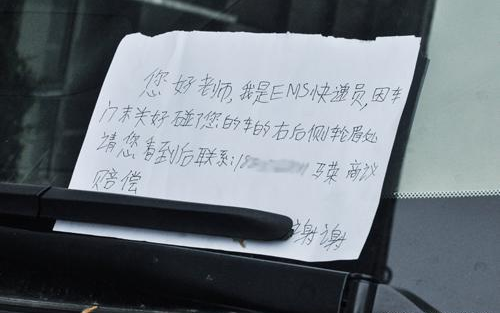 您好老师,我是EMS快递员,因车
门未关好碰了您的车的右后侧轮眉处
请您看到后联系:18 马荣 商议
赔偿
谢谢